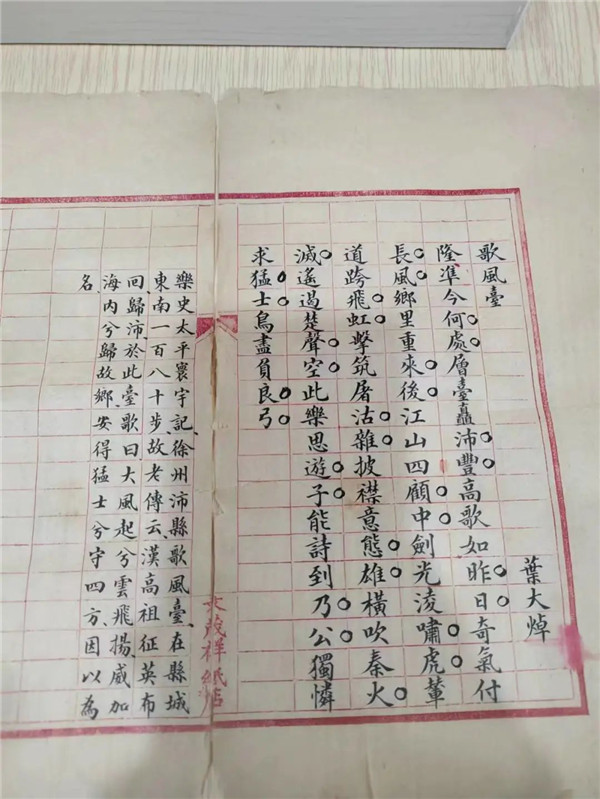 歌風臺 葉大焯
隆準今何處層臺矗沛豐高歌如昨日奇氣付
長風鄉里重來後江山四顧中劍光淩嘯虎輦
道跨飛虹擊筑屠沽雜披襟意態雄橫吹秦火
滅遙過楚聲空此樂思遊子能詩到乃公獨憐
求猛士鳥盡負良弓
茂祥紙店
樂史太平寰宇記、徐州沛縣歌風臺、在縣城
東南一百八十步、故老傳云、漢高祖征英布
回、歸沛、於此臺、歌曰大風起兮雲飛揚、威加
海内兮歸故鄉、安得猛士兮守四方、因以為
名、